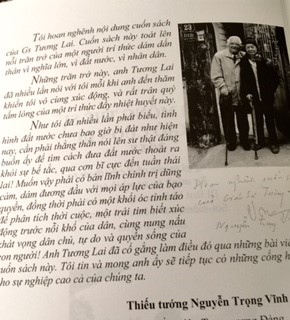 Tôi hoan nghênh nội dung cuốn sách
của Gs Tương Lai. Cuốn sách này toát lên
nỗi trăn trở của một người trí thức dám dấn
thân vì nghĩa lớn, vì đất nước, vì nhân dân.
Những trăn trở này, anh Tương Lai
đã nhiều lần nói với tôi mỗi khi anh đến thăm
khiến tôi vô cùng xúc động, và rất trân quý
tấm lòng của một trí thức đầy nhiệt huyết này.
Như tôi đã nhiều lần phát biểu, tình
hình đất nước chưa bao giờ bi đát như hiện
nay, cần phải thẳng thắn nói lên sự thật đáng
buồn ấy để tìm cách đưa đất nước thoát ra
khỏi sự bế tắc, qua cơn bĩ cực đến tuần thái
lai! Muốn vậy phải có bản lĩnh chính trị dũng
cảm, dám đương đầu với mọi áp lực của bạo
quyền, đồng thời phải có một khối óc tỉnh táo
để phân tích thời cuộc, một trái tim biết xúc
động trước nỗi khổ của dân, cùng nung nấu
khát vọng dân chủ, tự do và quyền sống của
con người! Anh Tương Lai đã cố gắng làm điều đó qua những bài v
cuốn sách này. Tôi tin và mong anh ấy sẽ tiếp tục có những cống h
cho sự nghiệp cao cả của chúng ta.
Thiếu tướng Nguyễn Trọng Vĩnh
23